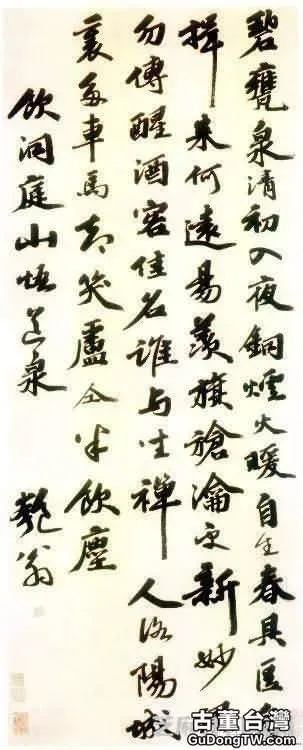 碧甕泉清初入夜銅爐火暖自生春具區舟
楫來何遠昜羨旗槍瀹更新妙理
勿傳醒酒客佳名誰与坐禪人洛陽城
裏多車馬却笑盧仝半飲塵
飲洞庭山悟道泉 匏翁
古董台灣
GuDongTW.com